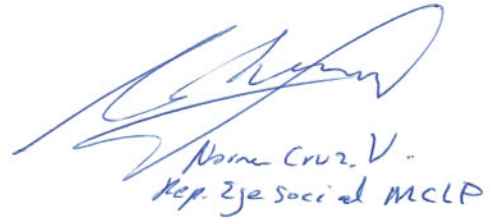 Norma Cruz. V.
Rep. Eje Social MCLP